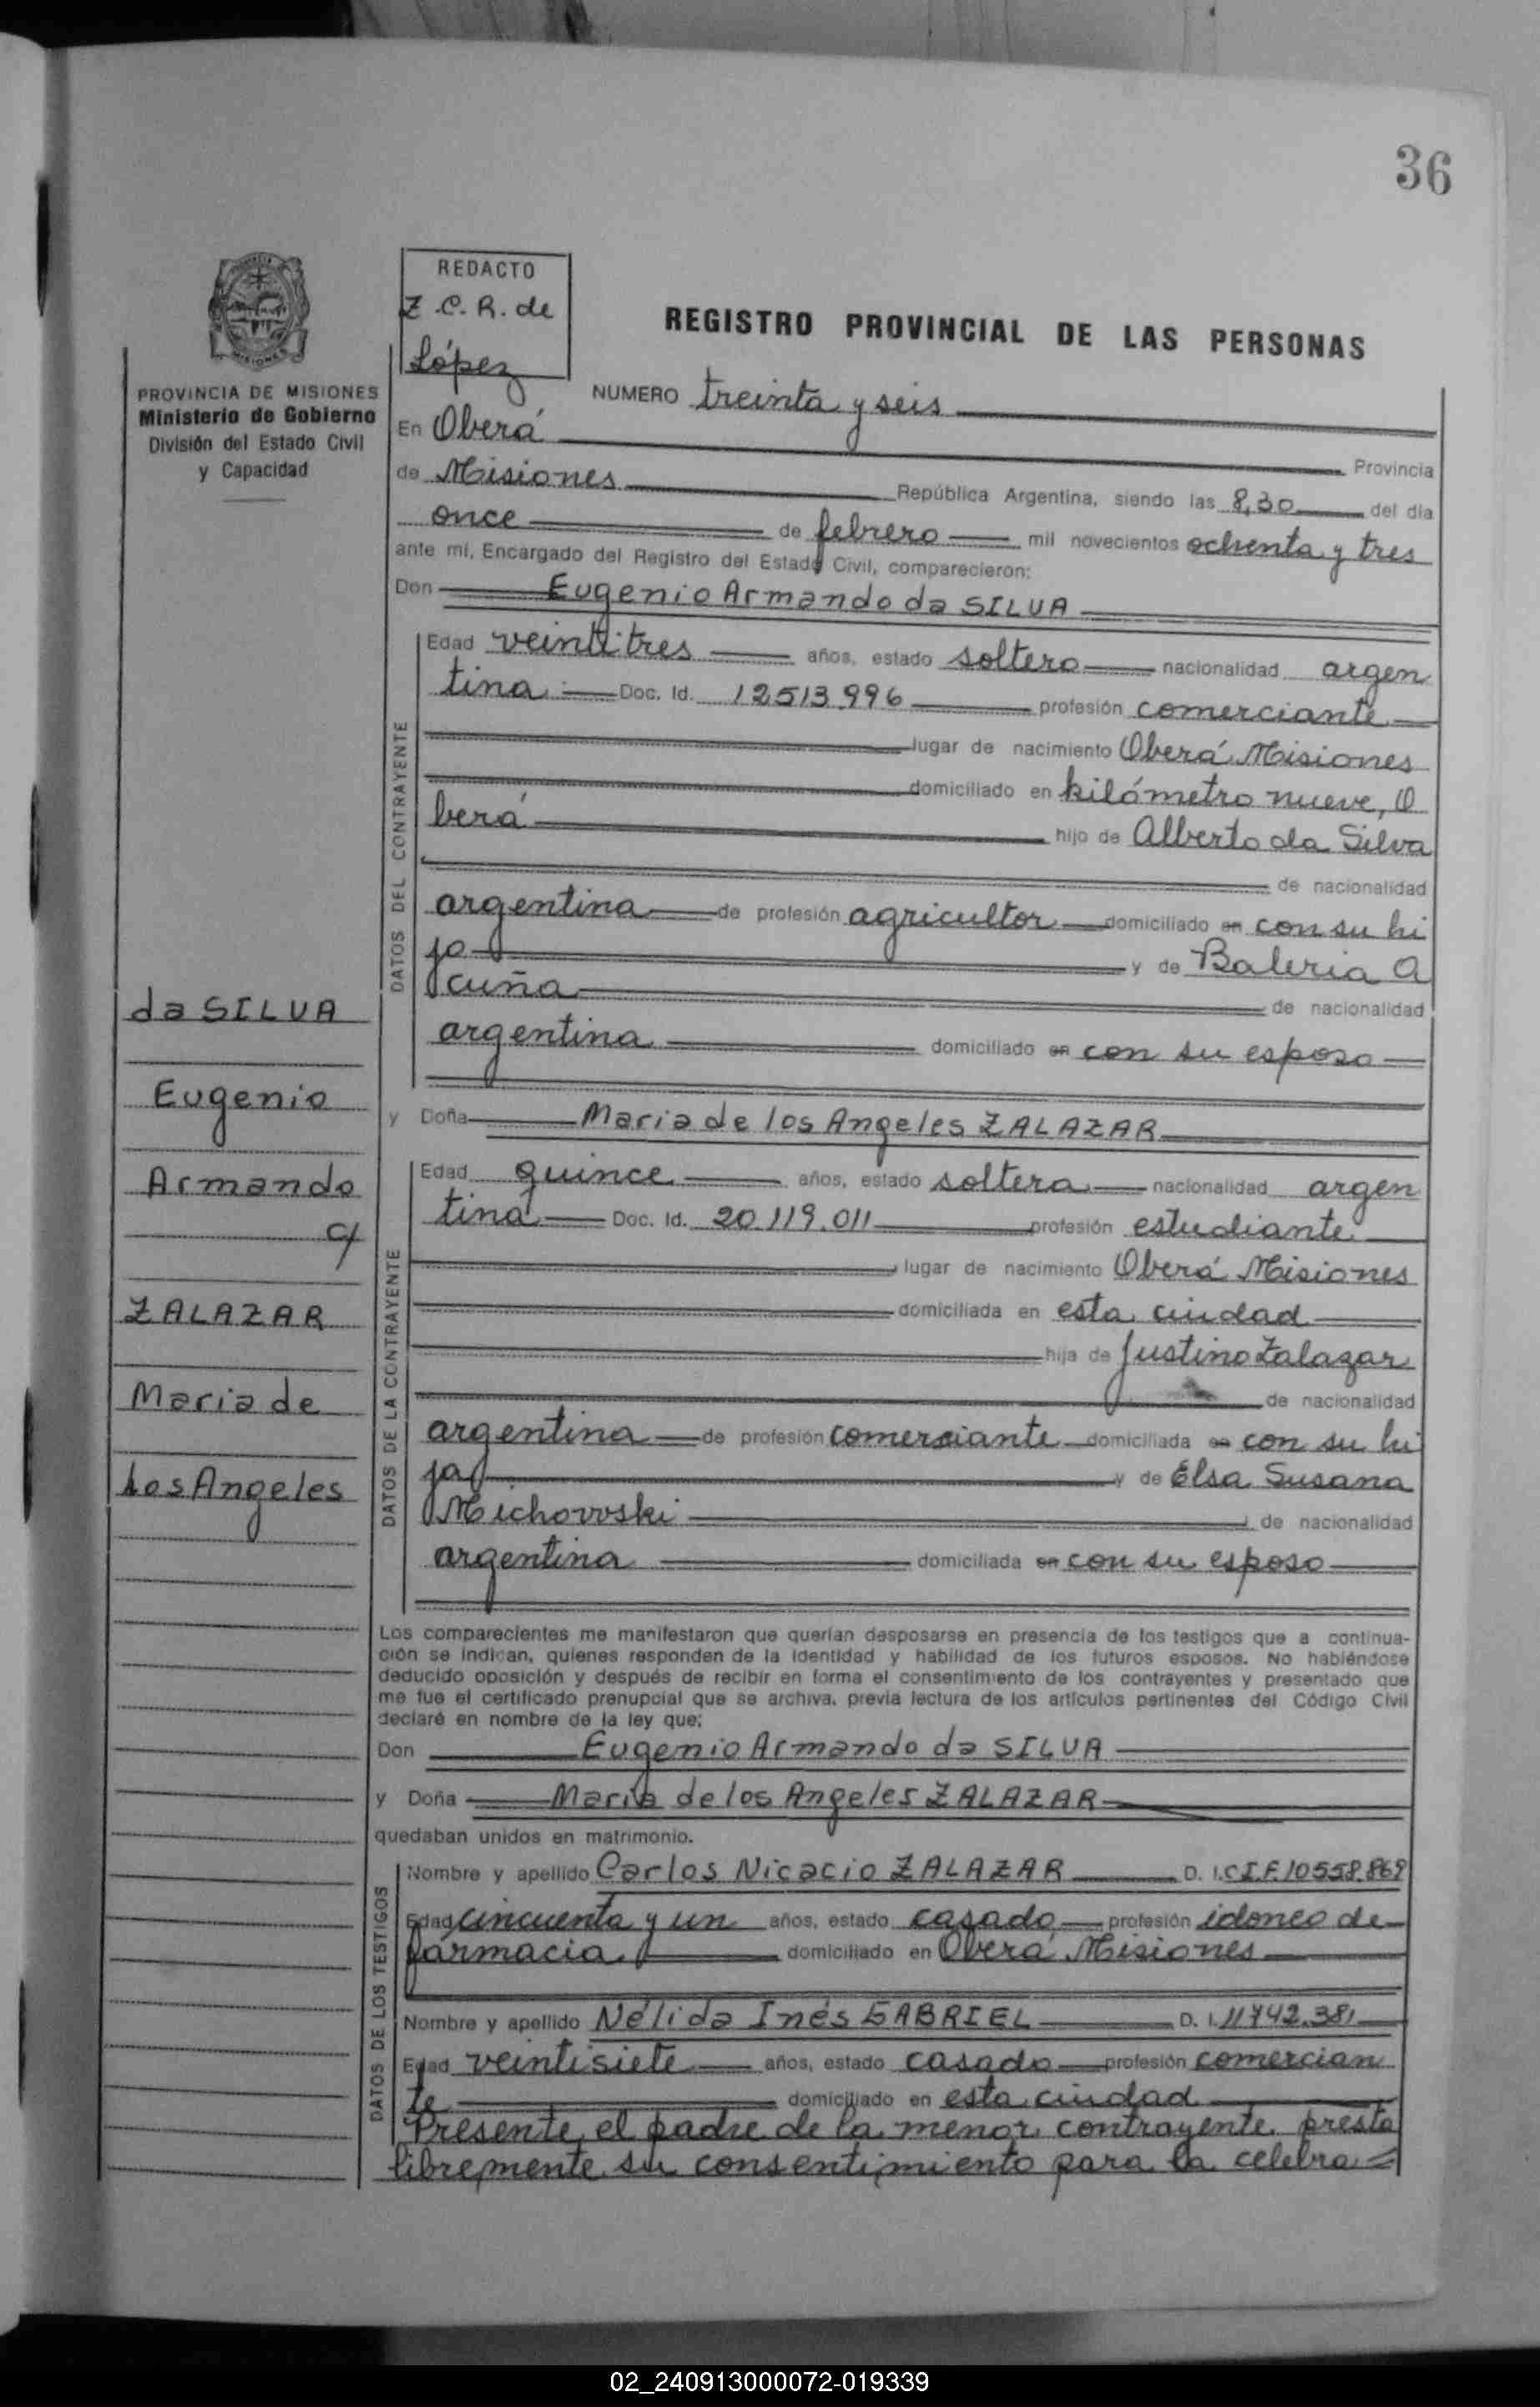 36
REDACTO
Z.C.R. de
López
REGISTRO PROVINCIAL DE LAS PERSONAS
PROVINCIA DE MISIONES
Ministerio de Gobierno
División del Estado Civil
y Capacidad
NUMERO treinta y seis
En Oberá
Provincia
de Misiones República Argentina, siendo las 8,30 del día
once de febrero mil novecientos ochenta y tres
ante mí, Encargado del Registro del Estado Civil, comparecieron:
Don Eugenio Armando da SILVA
DATOS DEL CONTRAYENTE
Edad veintitres años, estado soltero nacionalidad argen
tina Doc. Id. 12513996 profesión comerciante
lugar de nacimiento Oberá Misiones
domiciliado en kilómetro nueve, O
berá hijo de Alberto da Silva
de nacionalidad
argentina de profesión agricultor domiciliado en con su hi
jo y de Baleria A
cuña de nacionalidad
argentina domiciliado en con su esposo
y Doña Maria de los Angeles ZALAZAR
DATOS DE LA CONTRAYENTE
Edad quince años, estado soltera nacionalidad argen
tina Doc. Id. 20.119.011 profesión estudiante
lugar de nacimiento Oberá Misiones
domiciliada en esta ciudad
hija de Justino Zalazar
de nacionalidad
argentina de profesión comerciante domiciliada en con su hi
ja y de Elsa Susana
Michovski de nacionalidad
argentina domiciliada en con su esposo
da SILVA
Eugenio
Armando
c/
ZALAZAR
Maria de
Los Angeles
Los comparecientes me manifestaron que querían desposarse en presencia de los testigos que a continua-
ción se indican, quienes responden de la identidad y habilidad de los futuros esposos. No habiéndose
deducido oposición y después de recibir en forma el consentimiento de los contrayentes y presentado que
me fue el certificado prenupcial que se archiva, previa lectura de los artículos pertinentes del Código Civil
declaré en nombre de la ley que:
Don Eugenio Armando da SILVA
y Doña Maria de los Angeles ZALAZAR
quedaban unidos en matrimonio.
DATOS DE LOS TESTIGOS
Nombre y apellido Carlos Nicacio ZALAZAR D. I. C.I.F. 10558.869
Edad cincuenta y un años, estado casado profesión idoneo de
farmacia domiciliado en Oberá Misiones
Nombre y apellido Nélida Inés GABRIEL D. I. 11742.381
Edad veintisiete años, estado casada profesión comercian
te domiciliado en esta ciudad
Presente el padre de la menor contrayente presta
libremente su consentimiento para la celebra=
02_240913000072-019339